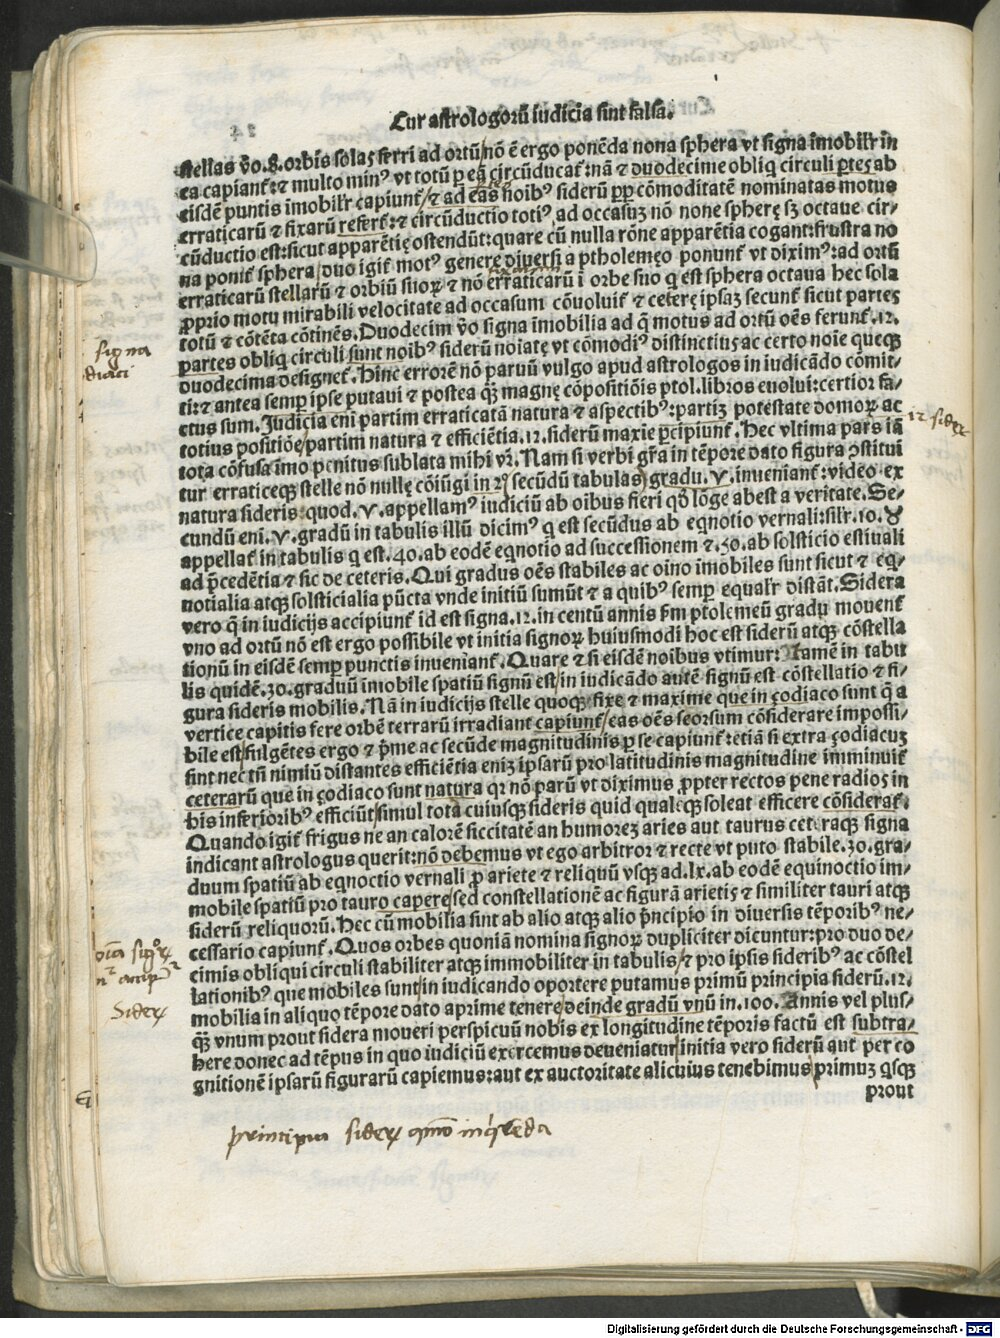 Cur astrologorū iudicia sint falsa.
stellas v̄o .8. orbis solas ferri ad ortū/nō ē ergo ponēda nona sphera vt signa imobilr̄ in
ea capiant̄: ⁊ multo minꝰ vt totū p eā circūducat̄: nā ⁊ duodecime obliq̄ circuli ptes ab
eisdē puntis imobilr̄ capiunt̄/⁊ ad eas noibꝰ siderū pp̄ cōmoditatē nominatas motus
erraticarū ⁊ fixarū refert̄: ⁊ circūductio totiꝰ ad occasuꝫ nō none spherę sꝫ octaue cir/
cūductio est: sicut apparētię ostendūt: quare cū nulla rōne apparētia cogant̄: frustra no
na ponit̄ sphera/duo igit̄ motꝰ genere diversi a ptholemęo ponunt̄ vt diximꝰ: ad ortū
erraticarū stellarū ⁊ orbiū suoꝝ ⁊ nō erraticarū ī orbe suo q̄ est sphera octaua hec sola
ꝓprio motu mirabili velocitate ad occasum cōuoluit̄ ⁊ ceterę ipsaꝫ secunt̄ sicut partes
totū ⁊ cōtēta cōtinēs. Duodecim v̄o signa īmobilia ad q̄ motus ad ortū oēs ferunt̄ .12.
partes obliq̄ circuli sunt noibꝰ siderū noiatę vt cōmodiꝰ distinctiꝰ ac certo noīe queqꝫ
duodecima designet̄. Hinc errorē nō paruū vulgo apud astrologos in iudicādo cōmit/
ti: ⁊ antea semp̄ ipse putaui ⁊ postea qꝫ magnę cōpositiōis ptol. libros euolui: certior fa/
ctus sum. Judicia eni partim erraticatā natura ⁊ aspectibꝰ: partiꝫ potestate domoꝝ ac
totius positiōe/partim natura ⁊ efficiētia .12. siderū maxie p̄cipiunt̄. Hec vltima pars iā
tota cōfusa īmo penitus sublata mihi vr̄. Nam si verbi gr̄a in tēpore dato figura ꝯstitui
tur erraticeqꝫ stelle nō nullę cōiūgi in ♉ secūdū tabulas/gradu .V. inueniant̄: video ex
natura sideris quod .V. appellamꝰ iudiciū ab oibus fieri qd̄ lōge abest a veritate. Se/
cundū eni .V. gradū in tabulis illū dicimꝰ q̄ est secūdus ab eqnotio vernali: silr̄ .10. ♉
appellat̄ in tabulis q̄ est .40. ab eodē eqnotio ad successionem ⁊ .50. ab solsticio estiuali
ad p̄cedētia ⁊ sic de ceteris. Qui gradus oēs stabiles ac oino imobiles sunt sicut ⁊ eq̄/
notialia atqꝫ solsticialia pūcta vnde initiū sumūt ⁊ a quibꝰ semp̄ equalr̄ distāt. Sidera
vero q̄ in iudicijs accipiunt̄ id est signa .12. in centū annis fm ptolemeū gradu mouent̄
vno ad ortū nō est ergo possibile vt initia signoꝝ huiusmodi hoc est siderū atqꝫ cōstella
tionū in eisdē semp̄ punctis inueniant̄. Quare ⁊ si eisdē noibus vtimur: Tamē in tabu
lis quidē .30. graduū īmobile spatiū signū est/in iudicādo autē signū est cōstellatio ⁊ fi/
gura sideris mobilis. Nā in iudicijs stelle quoqꝫ fixe ⁊ maxime que in ꝫodiaco sunt q̄ a
vertice capitis fere orbē terrarū irradiant capiunt̄/eas oēs seorsum cōsiderare impossi/
bile est/fulgētes ergo ⁊ p̄me ac secūde magnitudinis p se capiunt̄: etiā si extra ꝫodiacuꝫ
sint nec tn̄ nimiū distantes efficiētia eniꝫ ipsarū pro latitudinis magnitudine imminuit̄
ceterarū que in ꝫodiaco sunt natura qꝛ nō parū vt diximus ꝓpter rectos pene radios in
his inferioribꝰ efficiūt/simul tota cuiusqꝫ sideris quid qualeqꝫ soleat efficere cōsiderat̄.
Quando igit̄ frigus ne an calorē siccitatē an humoreꝫ aries aut taurus ceteraqꝫ signa
indicant astrologus querit: nō debemus vt ego arbitror ⁊ recte vt puto stabile .30. gra/
duum spatiū ab eqnoctio vernali ꝓ ariete ⁊ reliquū vsqꝫ ad .lx. ab eodē equinoctio im/
mobile spatiū pro tauro capere/sed constellationē ac figurā arietis ⁊ similiter tauri atqꝫ
siderū reliquorū. Hec cū mobilia sint ab alio atqꝫ alio p̄ncipio in diuersis tēporibꝰ ne/
cessario capiunt̄. Quos orbes quoniā nomina signoꝝ dupliciter dicuntur: pro duo de/
cimis obliqui circuli stabiliter atqꝫ immobiliter in tabulis/⁊ pro ipsis sideribꝰ ac cōstel
lationibꝰ que mobiles sunt/in iudicando oportere putamus primū principia siderū .12.
mobilia in aliquo tēpore dato aprime tenere/deinde gradū vnū in .100. Annis vel plus/
qꝫ vnum prout sidera moueri perspicuū nobis ex longitudine tēporis factū est subtra/
here donec ad tēpus in quo iudiciū exercemus deueniatur/initia vero siderū aut per co
gnitionē ipsarū figurarū capiemus: aut ex auctoritate alicuius tenebimus/primuꝫ qsqꝫ
prout
signa
ꝫodiaci
12 siderꝝ
Siderꝝ
principia siderꝝ quō inq̄rēda
Digitalisierung gefördert durch die Deutsche Forschungsgemeinschaft - DFG